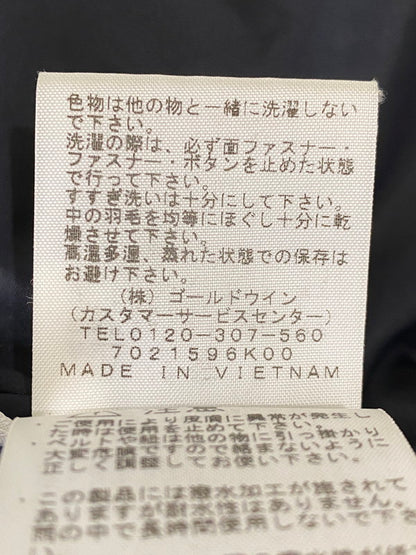 色物は他の物と一緒に洗濯しない
で下さい。
洗濯の際は、必ず面ファスナー・
ファスナー・ボタンを止めた状態
で行って下さい。
すすぎ洗いは十分にして下さい。
中の羽毛を均等にほぐし十分に乾
燥させて下さい。
高温多湿、蒸れた状態での保存は
お避け下さい。
(株)ゴールドウイン
(カスタマーサービスセンター)
TEL0120-307-560
7021596K00
MADE IN VIETNAM
この製品には撥水加工が施されて
おりますが耐水性はありません。
雨の中で長時間使用しないで下